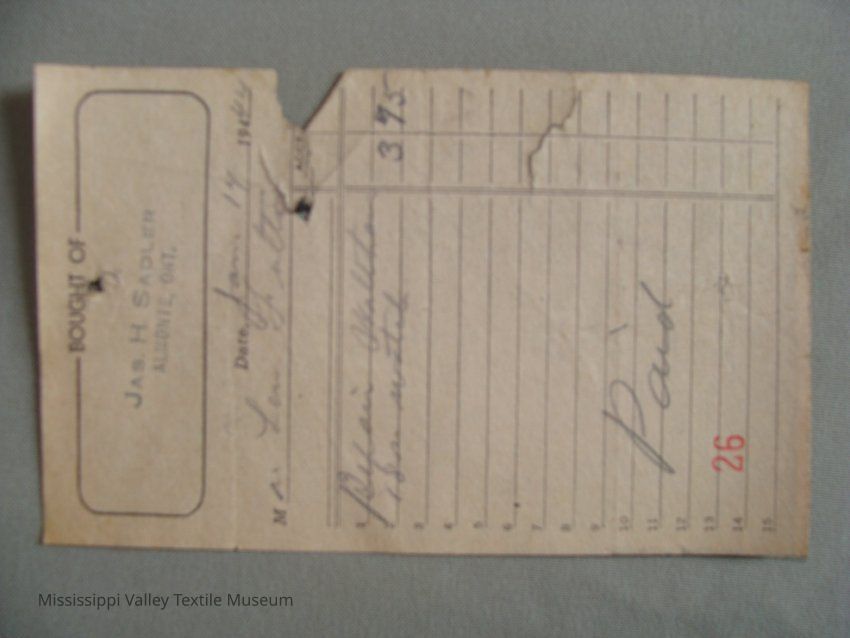 BOUGHT OF
JAS. H. SADLER
ALMONTE, ONT.
Date Jan 19 1944
M
Repair Waltham 3 75
watch
3
4
5
6
7
8
9
10
11
12
13
14
15
Paid
26
Mississippi Valley Textile Museum